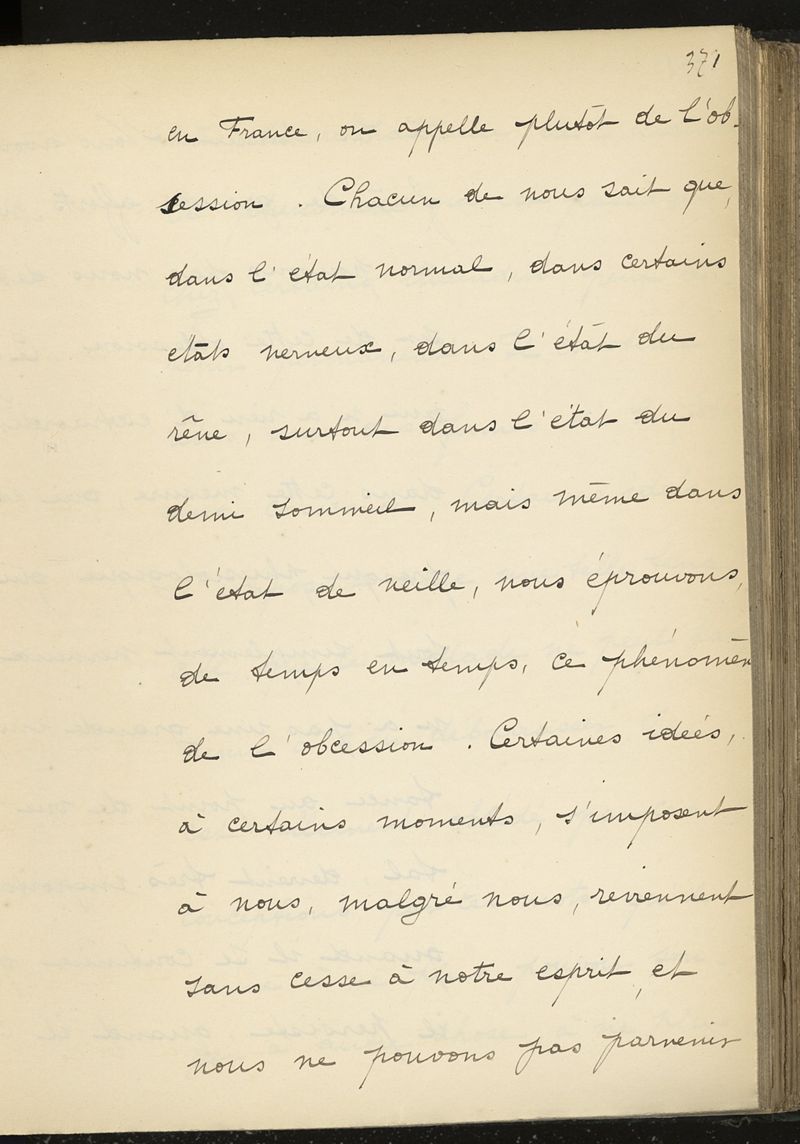 371
en France, on appelle plutôt de l'ob-
session. Chacun de nous sait que,
dans l'état normal, dans certains
états nerveux, dans l'état du
rêve, surtout dans l'état du
demi sommeil, mais même dans
l'état de veille, nous éprouvons,
de temps en temps, ce phénomèn
de l'obcession. Certaines idées,
à certains moments, s'imposent
à nous, malgré nous, reviennent
sans cesse à notre esprit, et
nous ne pouvons pas parvenir